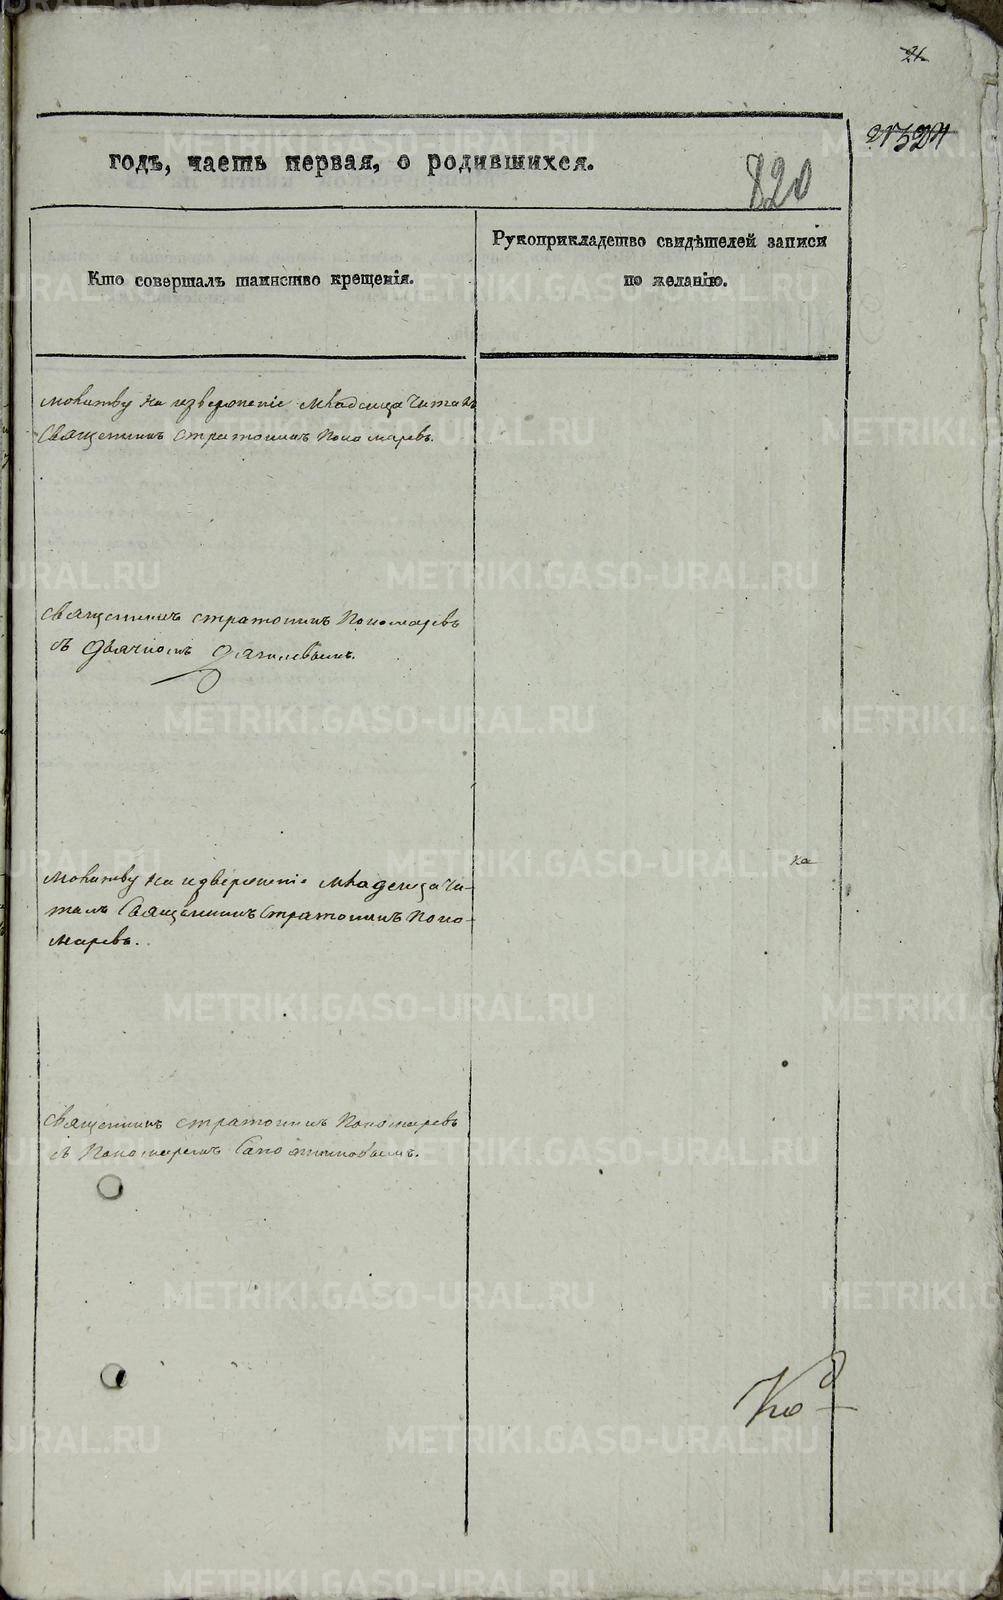 21
21524
годъ, часть первая, о родившихся.
820
Кто совершалъ таинство крещенія.
Рукоприкладство свидѣтелей записи
по желанію.
Молитву на изверженіе младенца читалъ
Священникъ Стратоникъ Пономаревъ.
Священникъ Стратоникъ Пономаревъ
съ Дьячкомъ
ка
Молитву на изверженіе младенца чи-
талъ Священникъ Стратоникъ Поно-
маревъ.
Священникъ Стратоникъ Пономаревъ
съ Пономаремъ Сапожниковымъ.
METRIKI.GASO-URAL.RU